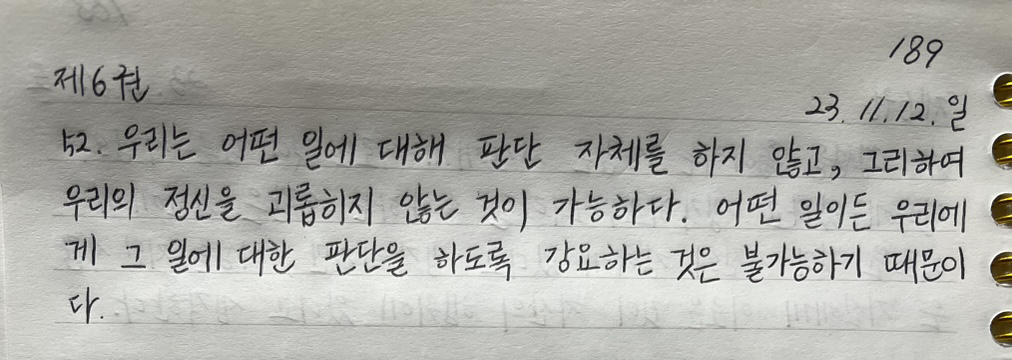 189
제6권
23. 11. 12. 일
52. 우리는 어떤 일에 대해 판단 자체를 하지 않고, 그리하여
우리의 정신을 괴롭히지 않는 것이 가능하다. 어떤 일이든 우리에
게 그 일에 대한 판단을 하도록 강요하는 것은 불가능하기 때문이
다.